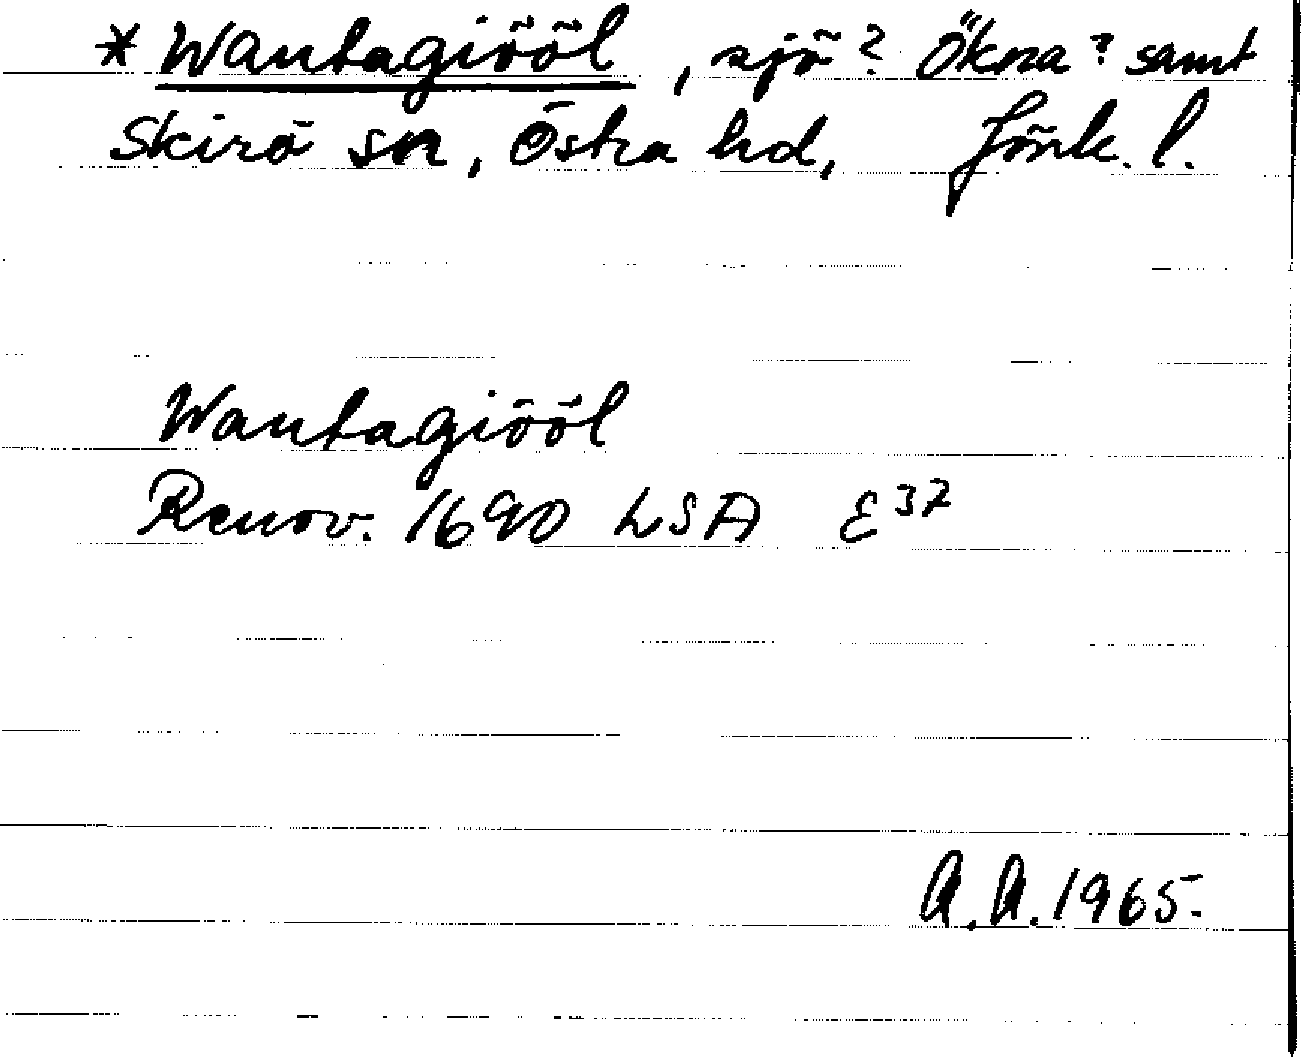 * Wantagiööl, sjö? Ökna? samt
Skirö sn, Östra hd, Jönk. l.
Wantagiööl
Renov. 1690 LSA E³⁷
A.A. 1965.